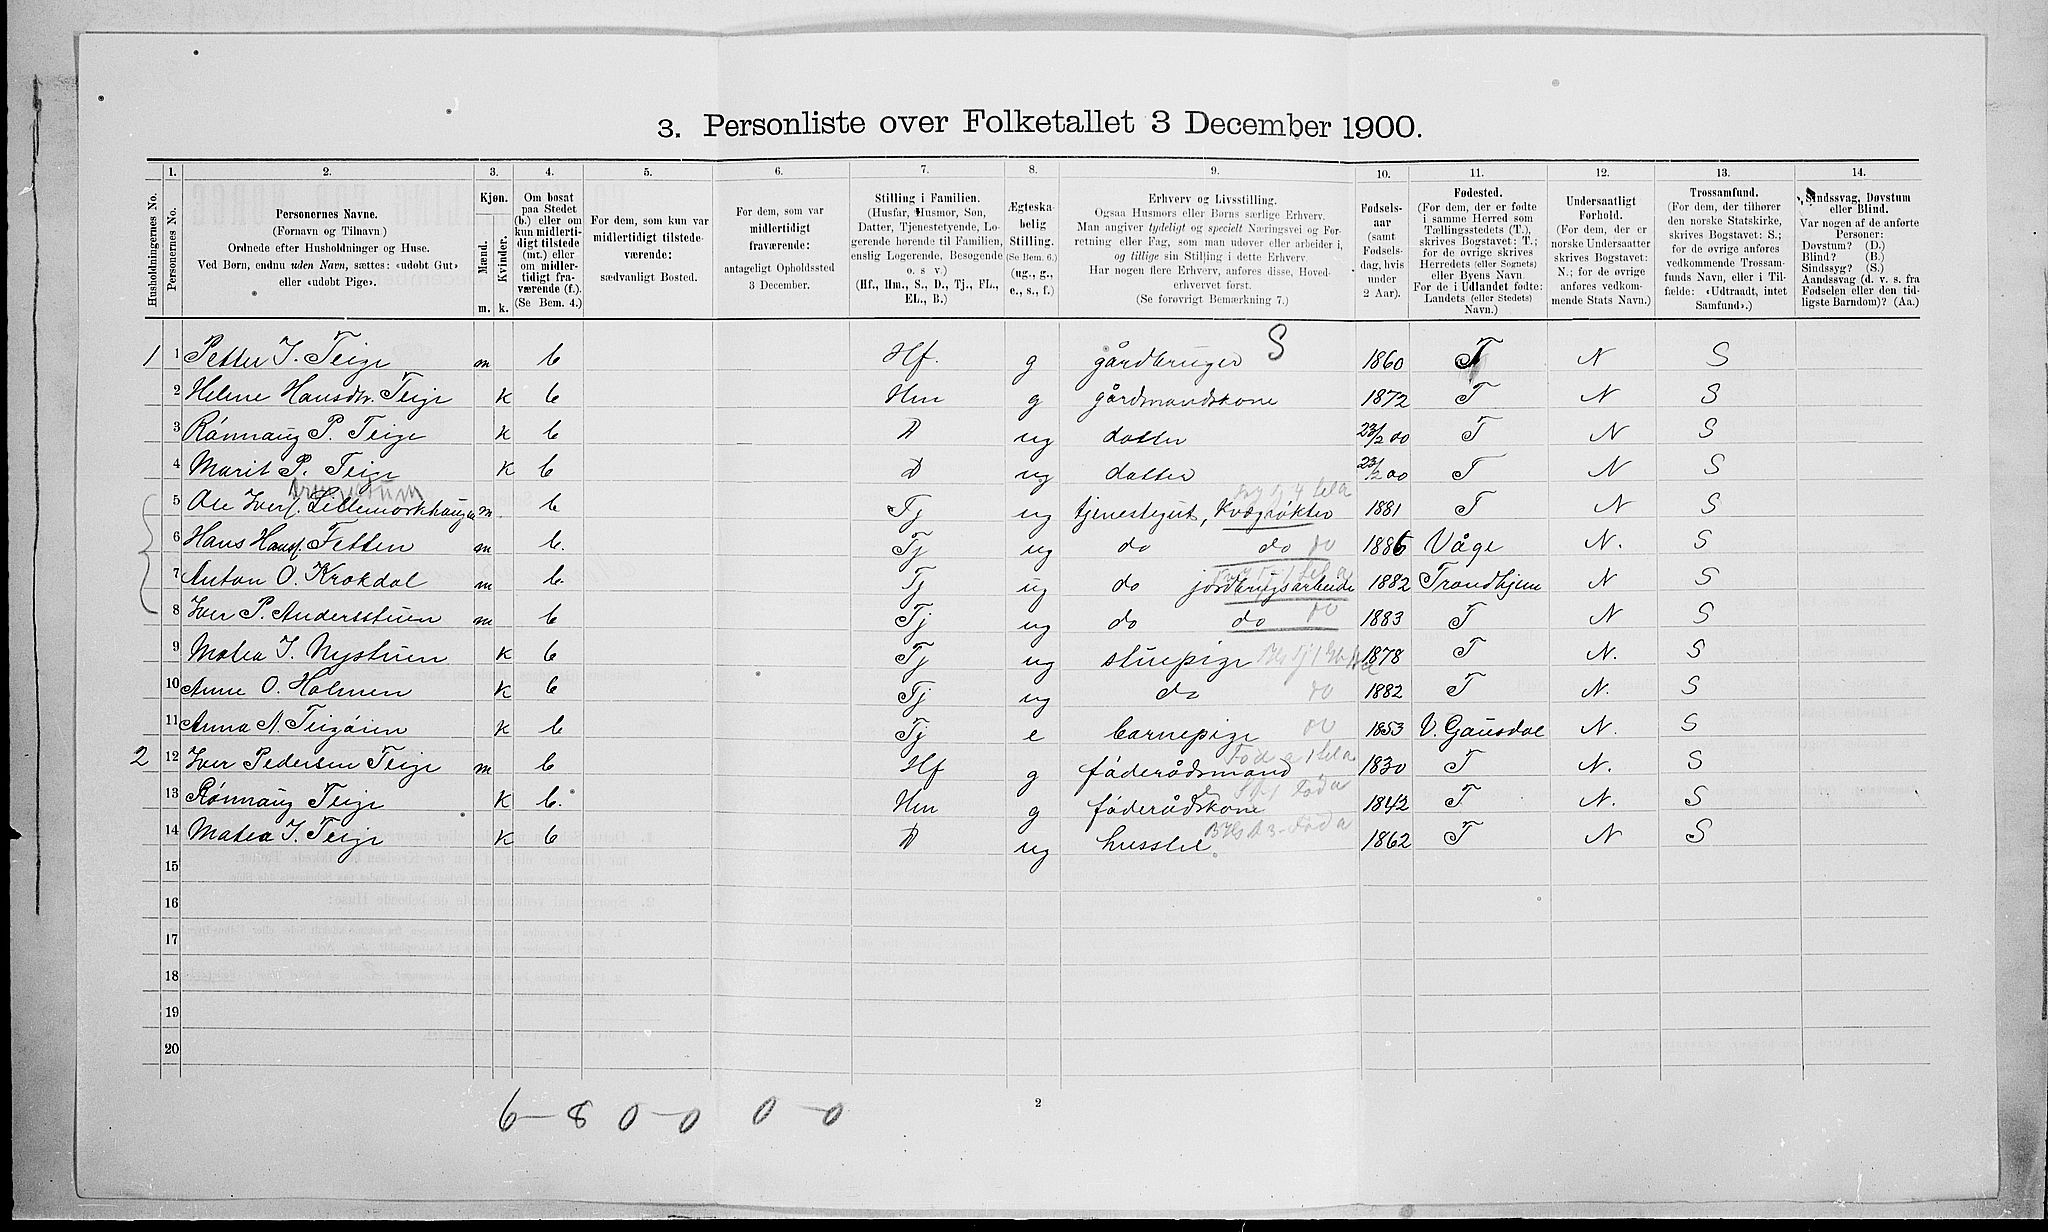 3. Personliste over Folketallet 3 December 1900.
Husholdningernes No.
1.
Personernes No.
2.
Personernes Navne.
(Fornavn og Tilnavn)
Ordnede efter Husholdninger og Huse.
Ved Børn, endnu uden Navn, sættes: «udøbt Gut»
eller «udøbt Pige».
3.
Kjøn.
Mænd.
Kvinder.
m. k.
4.
Om bosat
paa Stedet
(b.) eller om
kun midlerti-
digt tilstede
(mt.) eller
om midler-
tidigt fra-
værende (f.).
(Se Bem. 4.)
5.
For dem, som kun var
midlertidigt tilstede-
værende:
sædvanligt Bosted.
6.
For dem, som var
midlertidigt
fraværende:
antageligt Opholdssted
3 December.
7.
Stilling i Familien.
(Husfar, Husmor, Søn,
Datter, Tjenestetyende, Lo-
gerende hørende til Familien,
enslig Logerende, Besøgende
o. s v.)
(Hf., Hm., S., D., Tj., FL.,
EL., B.)
8.
Ægteska-
belig
Stilling.
(Se Bem. 6.)
(ug., g.,
e., s., f.)
9.
Erhverv og Livsstilling.
Ogsaa Husmors eller Børns særlige Erhverv.
Man angiver tydeligt og specielt Næringsvei og For-
retning eller Fag, som man udøver eller arbeider i,
og tillige sin Stilling i dette Erhverv.
Har nogen flere Erhverv, anføres disse, Hoved-
erhvervet først.
(Se forøvrigt Bemærkning 7.)
10.
Fødsels-
aar
(samt
Fødsels-
dag, hvis
under
2 Aar).
11.
Fødested.
(For dem, der er fødte
i samme Herred som
Tællingsstedets (T.),
skrives Bogstavet: T.;
for de øvrige skrives
Herredets (eller Sognets)
eller Byens Navn.
For de i Udlandet fødte:
Landets (eller Stedets)
Navn.)
12.
Undersaatligt
Forhold.
(For dem, der er
norske Undersaatter
skrives Bogstavet:
N.; for de øvrige
anføres vedkom-
mende Stats Navn.)
13.
Trossamfund.
(For dem, der tilhører
den norske Statskirke,
skrives Bogstavet: S.;
for de øvrige anføres
vedkommende Trossam-
funds Navn, eller i Til-
fælde: «Udtraadt, intet
Samfund».)
14.
Sindssvag, Døvstum
eller Blind.
Var nogen af de anførte
Personer:
Døvstum? (D.)
Blind? (B.)
Sindssyg? (S.)
Aandssvag (d. v. s. fra
Fødselen eller den tid-
ligste Barndom)? (Aa.)
1 1 Petter I. Teige m b Hf. g gårdbruger S 1860 T N S
2 Helene Hansdtr. Teige k b Hm g gårdmandskone 1872 T N S
3 Rønnaug P. Teige k b D ug datter 23/2 00 T N S
4 Marit P. Teige k b D ug datter 23/2 00 T N S
5 Ole Iverf. Lillemorkhaugen m b Tj ug tjenestegut, Kvægrøkter 1881 T N S
6 Hans Hansf. Fetten m b. Tj ug do do do 1886 Våge N. S
7 Anton O. Krokdal m b. Tj ug do jordbrugsarbeide 1882 Trondhjem N S
8 Iver P. Andersstuen m b Tj ug do do do 1883 T N S
9 Matea I. Nystuen k b Tj ug stuepige 1878 T N. S
10 Anne O. Holmen k b Tj ug do do 1882 T N. S
11 Anna N. Teigøien k b Tj e barnepige do 1853 V. Gausdal N. S
2 12 Iver Pedersen Teige m b Hf g føderådsmand 1830 T N. S
13 Rønnaug Teige k b. Hm g føderådskone 1842 T N. S
14 Matea I. Teige k b D ug husstel 1862 T N S
15
16
17
18
19
20
6 – 8 0 0 – 0 0 – 0
2